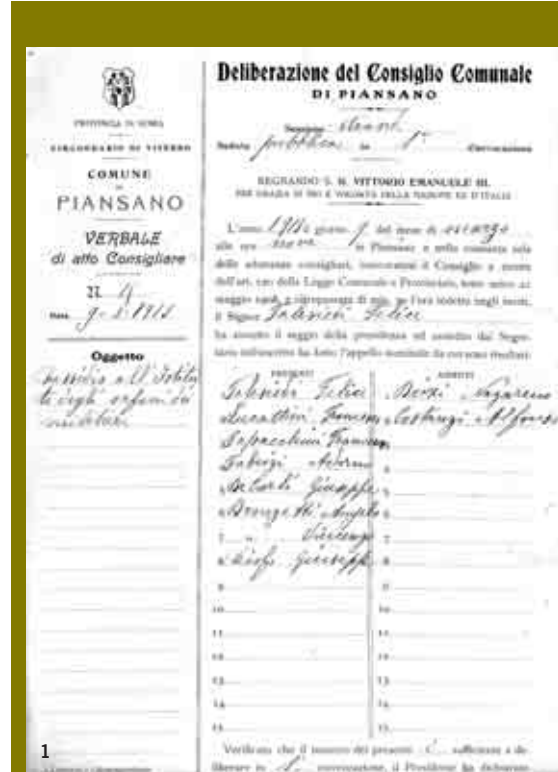 PROVINCIA DI ROMA
CIRCONDARIO DI VITERBO
COMUNE
DI
PIANSANO
VERBALE
di atto Consigliare
N. 4
Data 9-3-1918
Oggetto
Sussidio all'Istituto
degli orfani dei
militari
Deliberazione del Consiglio Comunale
DI PIANSANO
Sessione
Seduta pubblica in 1ª Convocazione
REGNANDO S. M. VITTORIO EMANUELE III.
PER GRAZIA DI DIO E VOLONTÀ DELLA NAZIONE RE D'ITALIA
L'anno 1918 giorno 9 del mese di marzo
alle ore nove in Piansano e nella consueta sala
delle adunanze consigliari, convocatosi il Consiglio a norma
dell'art. della Legge Comunale e Provinciale, testo unico 21
maggio 1908, e
il Signor Talucci Felice
ha assunto il seggio della presidenza ed assistito dal Segre-
tario sottoscritto ha fatto l'appello nominale da cui sono risultati:
PRESENTI
ASSENTI
Felice
Lucattini Francesco
Francesco
Fabrizi
De Carli Giuseppe
Bronzetti Angelo
7 " Vincenzo
8 Giuseppe
9
10
11
12
13
14
15
Nazareno
Costanzi Alfonso
7
8
9
10
11
12
13
14
15
Verificato che il numero dei presenti è sufficiente a de-
liberare in 1ª convocazione, il Presidente ha dichiarato
1